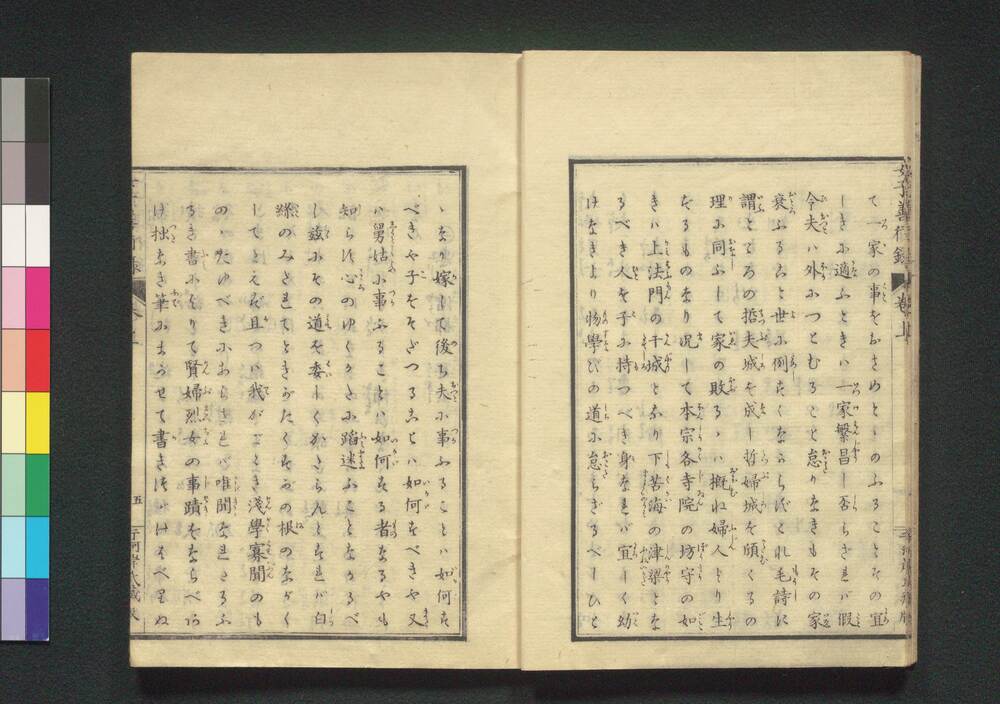 て一家の事をおさめとゝのふることその宜
しきに適ふときハ一家繁昌し否らざれバ假
令夫ハ外につとむること怠りなきもその家
衰ふること世に例すくなからずこれ毛詩に
謂ところの哲夫城を成し哲婦城を傾くるの
理に同ふして家の敗るゝハ概ね婦人より生
ずるものなり况して本宗各寺院の坊守の如
きハ上法門の干城となり下苦海の津梁とな
るべき人を子に持つべき身なれバ宜しく幼
けなきより物學びの道に怠らざるべしひと
ゝなり嫁して後ち夫に事ふることハ如何す
べきや子をそだつることハ如何すべきや又
ハ舅姑に事ふることハ如何する者なるやも
知らず心のゆくかたに蹈迷ふことなかるべ
し茲にその道を委しくかたらんとすれバ白
絲のみだれてときがたくすがの根のながく
してとえず且つハ我がごとき淺學寡聞のも
のゝたゆべきにあらざれバ唯聞なれたるふ
るき書によりて賢婦烈女の事蹟をならべ
け拙なき筆にまかせて書きつけはべりぬ
女子善行録
卷上
五